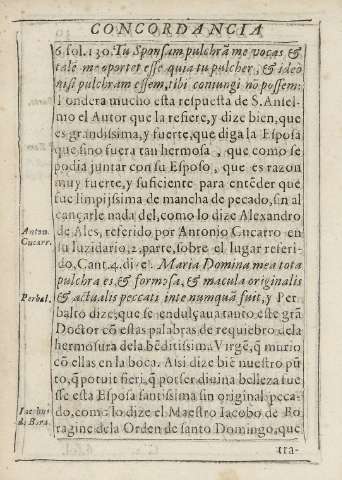 CONCORDANCIA
6. fol. 130. Tu Sponsam pulchrã me vocas &
talẽ me oportet esse, quia tu pulcher, & ideò
nisi pulchram essem, tibi coniungi nõ possem:
Pondera mucho esta respuesta de S. Ansel-
mo el Autor que la refiere, y dize bien, que
es grandissima, y fuerte, que diga la Esposa
que sino fuera tan hermosa, que como se
podia juntar con su Esposo, que es razon
muy fuerte, y suficiente para entẽder que
fue limpijsima de mancha de pecado, sin al
cançarle nada del, como lo dize Alexandro
Anton.
Cucarr.
de Ales, referido por Antonio Cucarro en
su luzidario, 2. parte, sobre el lugar referi-
do, Cant. 4. dize. Maria Domina mea tota
pulchra es, & formosa, & macula originalis
Perbal.
& actualis peccati in te nunquã fuit, y Per
balto dize, que se endulçaua tanto este grã
Doctor cõ estas palabras de requiebro dela
hermosura dela bẽditissima Virgẽ, q̃ murio
cõ ellas en la boca. Assi dize biẽ nuestro pũ
to, q̃ potuit fieri, q̃ por ser diuina belleza fue
sse esta Esposa santissima sin original peca-
Iacobus
de Bora.
do, como lo dize el Maestro Iacobo de Bo
ragine dela Orden de santo Domingo, que
tra-